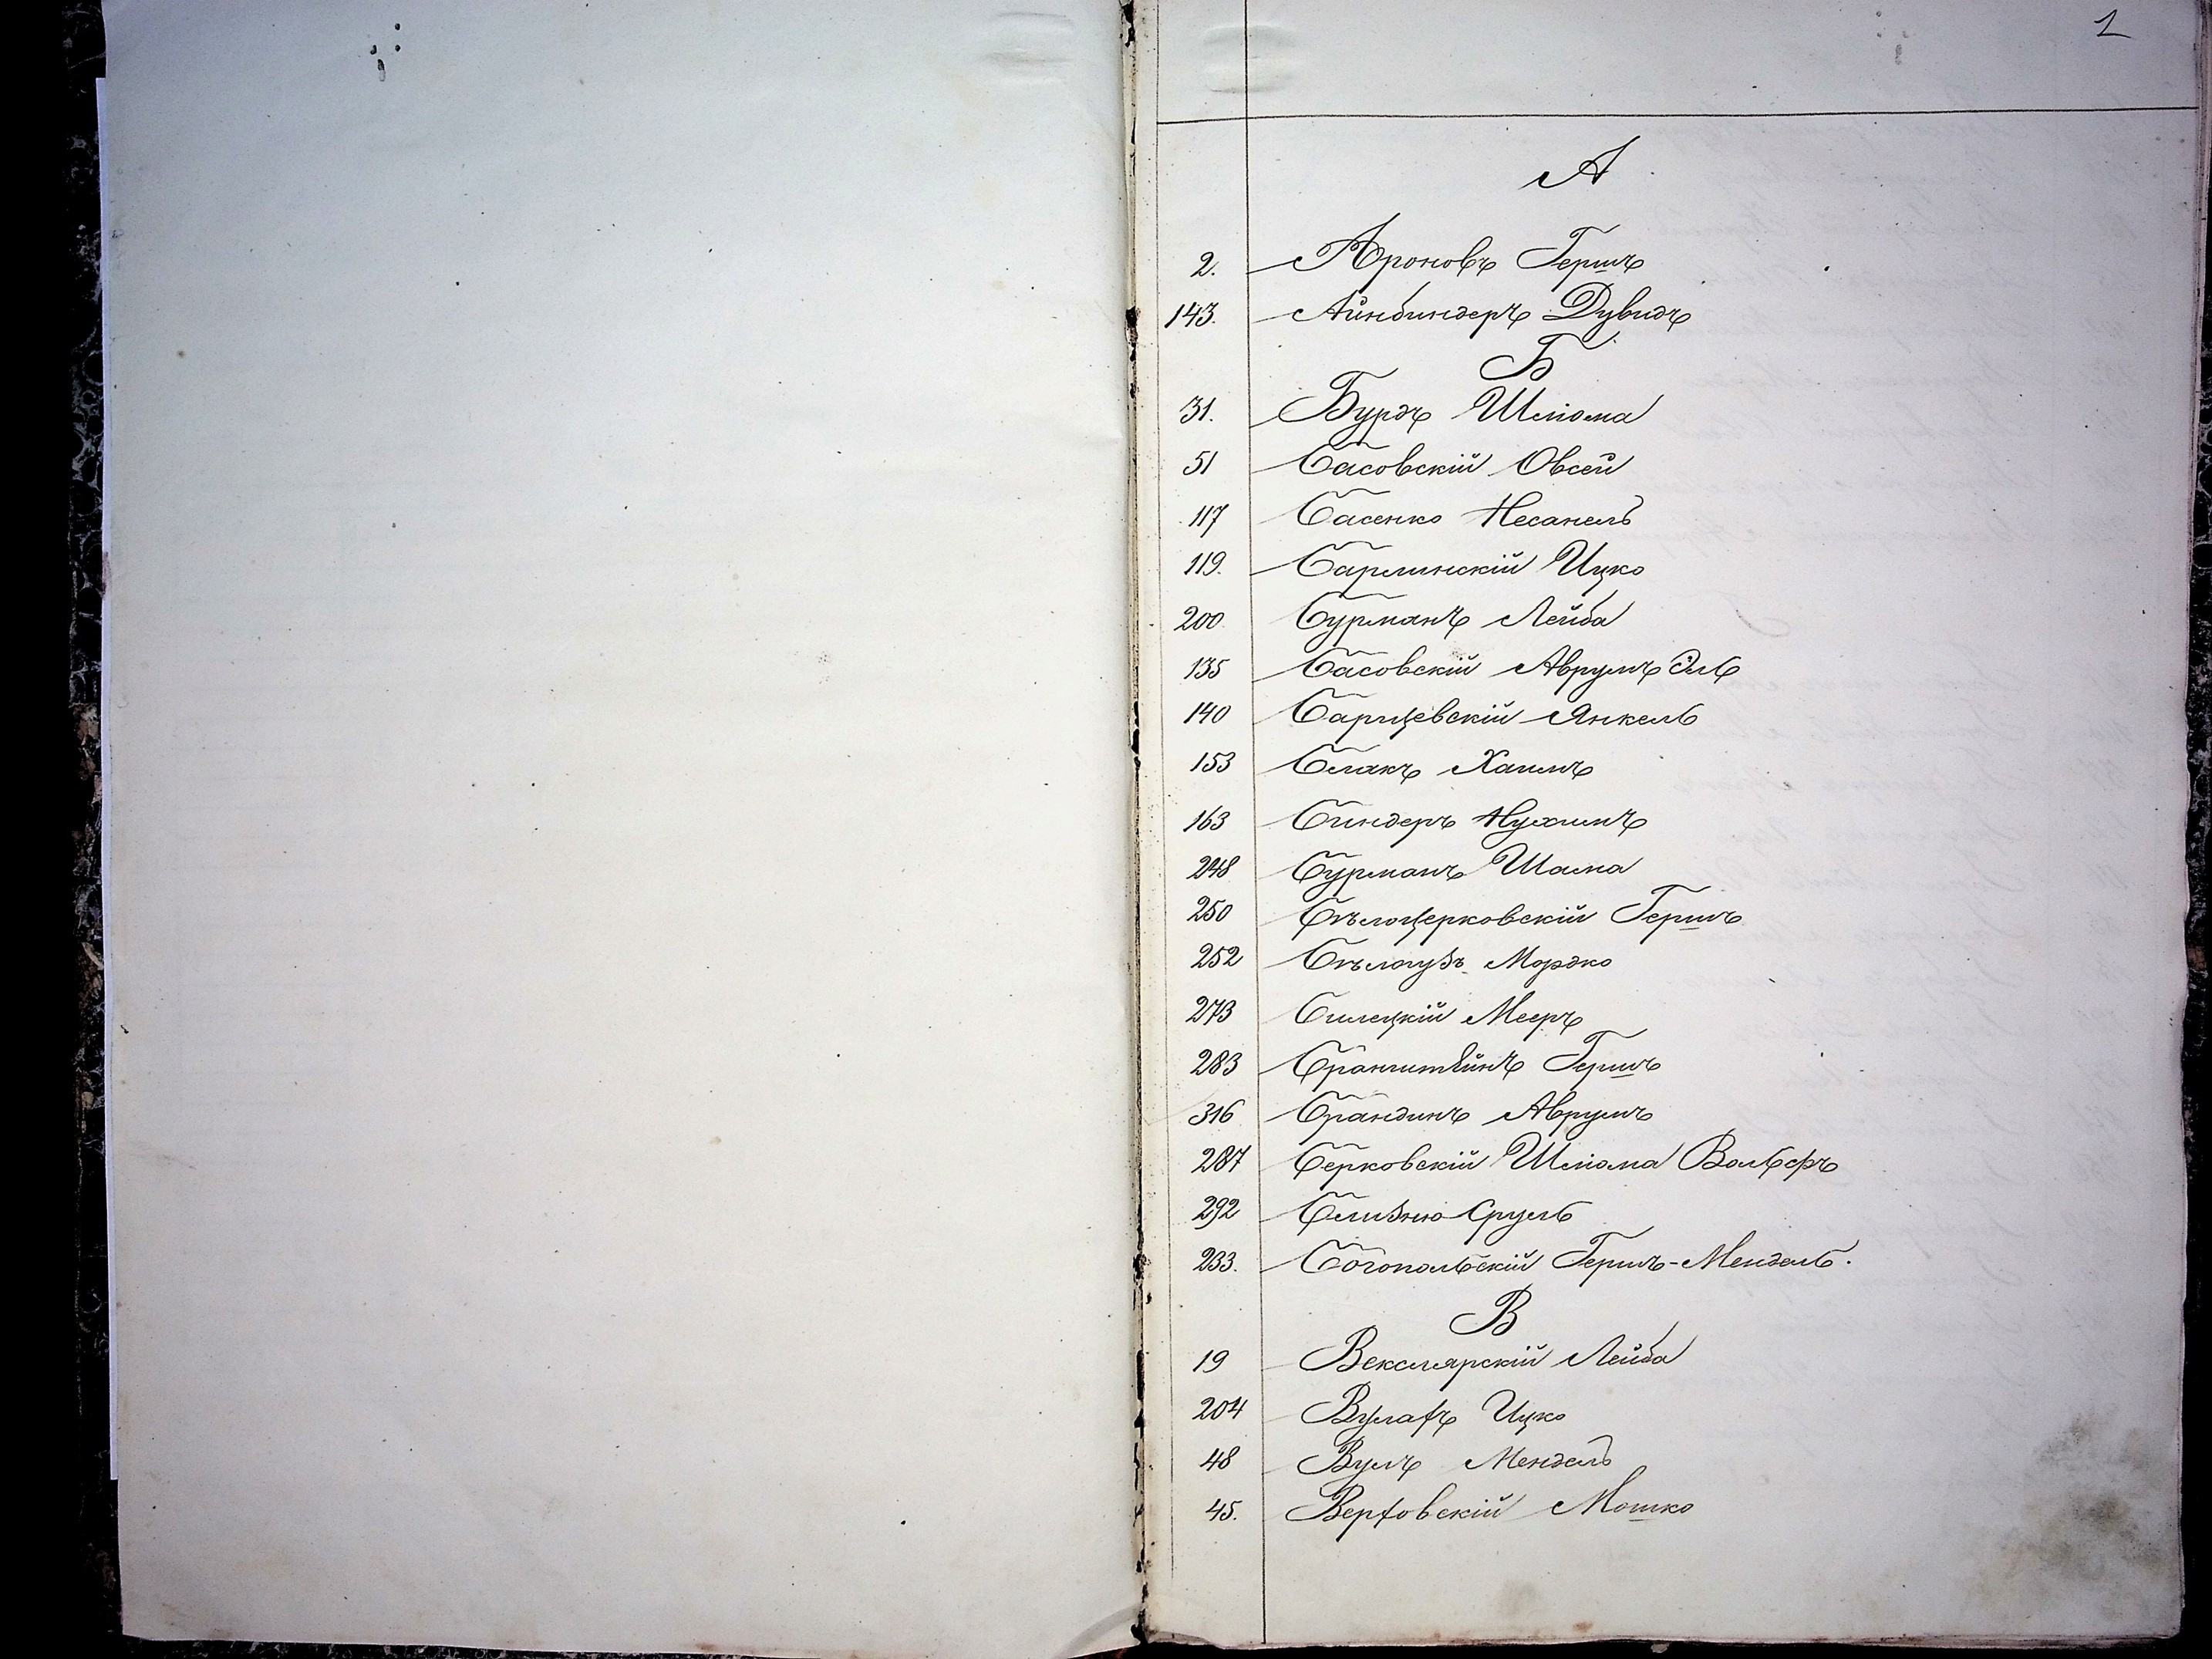 1
А
2. Ароновъ Гершъ
143. Айнбиндеръ Дувидъ
Б
31. Бурдъ Шліома
51 Басовскій Овсей
117 Басенко Несанель
119. Барлинскій Ицко
200 Бурманъ Лейба
135 Басовскій Аврумъ Эль
140 Барицевскій Янкель
153 Блакъ Хаимъ
163 Биндеръ Нухимъ
248 Бурманъ Шама
250 Бѣлоцерковскій Гершъ
252 Бѣлоузъ Мордко
273 Билецкій Мееръ
283 Бранштейнъ Гершъ
316 Брандинъ Аврумъ
287 Берковскій Шліома Вольфъ
292 Близнюк Сруль
233. Богопольскій Гершъ-Мендель.
В
19 Векслярскій Лейба
204 Вулахъ Ицко
48 Вулъ Мендель
45. Верховскій Мошко